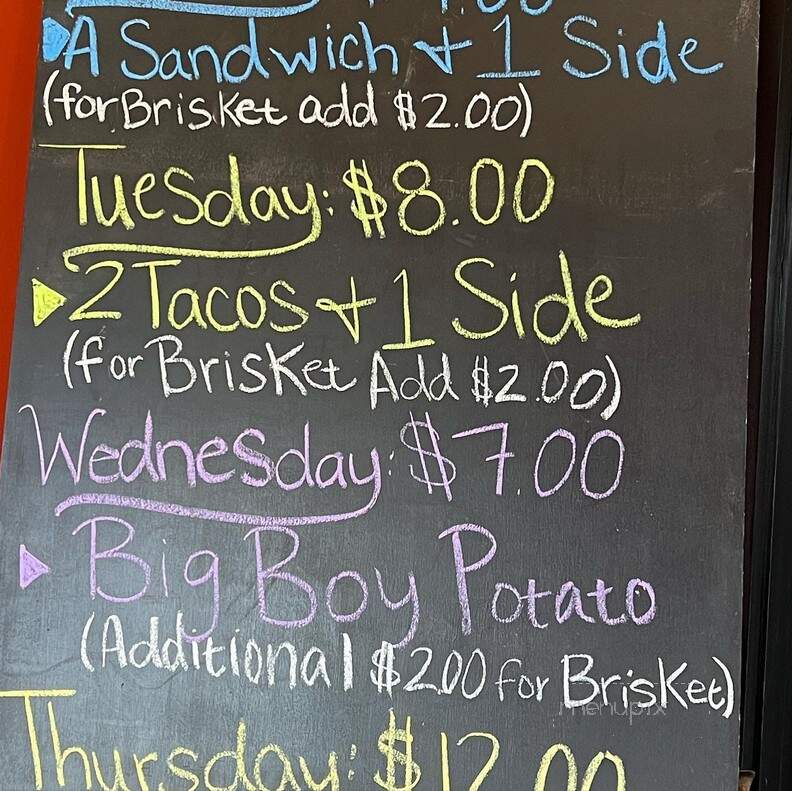 A Sandwich + 1 Side
(for Brisket add $2.00)
Tuesday: $8.00
2 Tacos + 1 Side
(for Brisket Add $2.00)
Wednesday: $7.00
Big Boy Potato
(Additional $2.00 for Brisket)
menupix
Thursday: $12.00